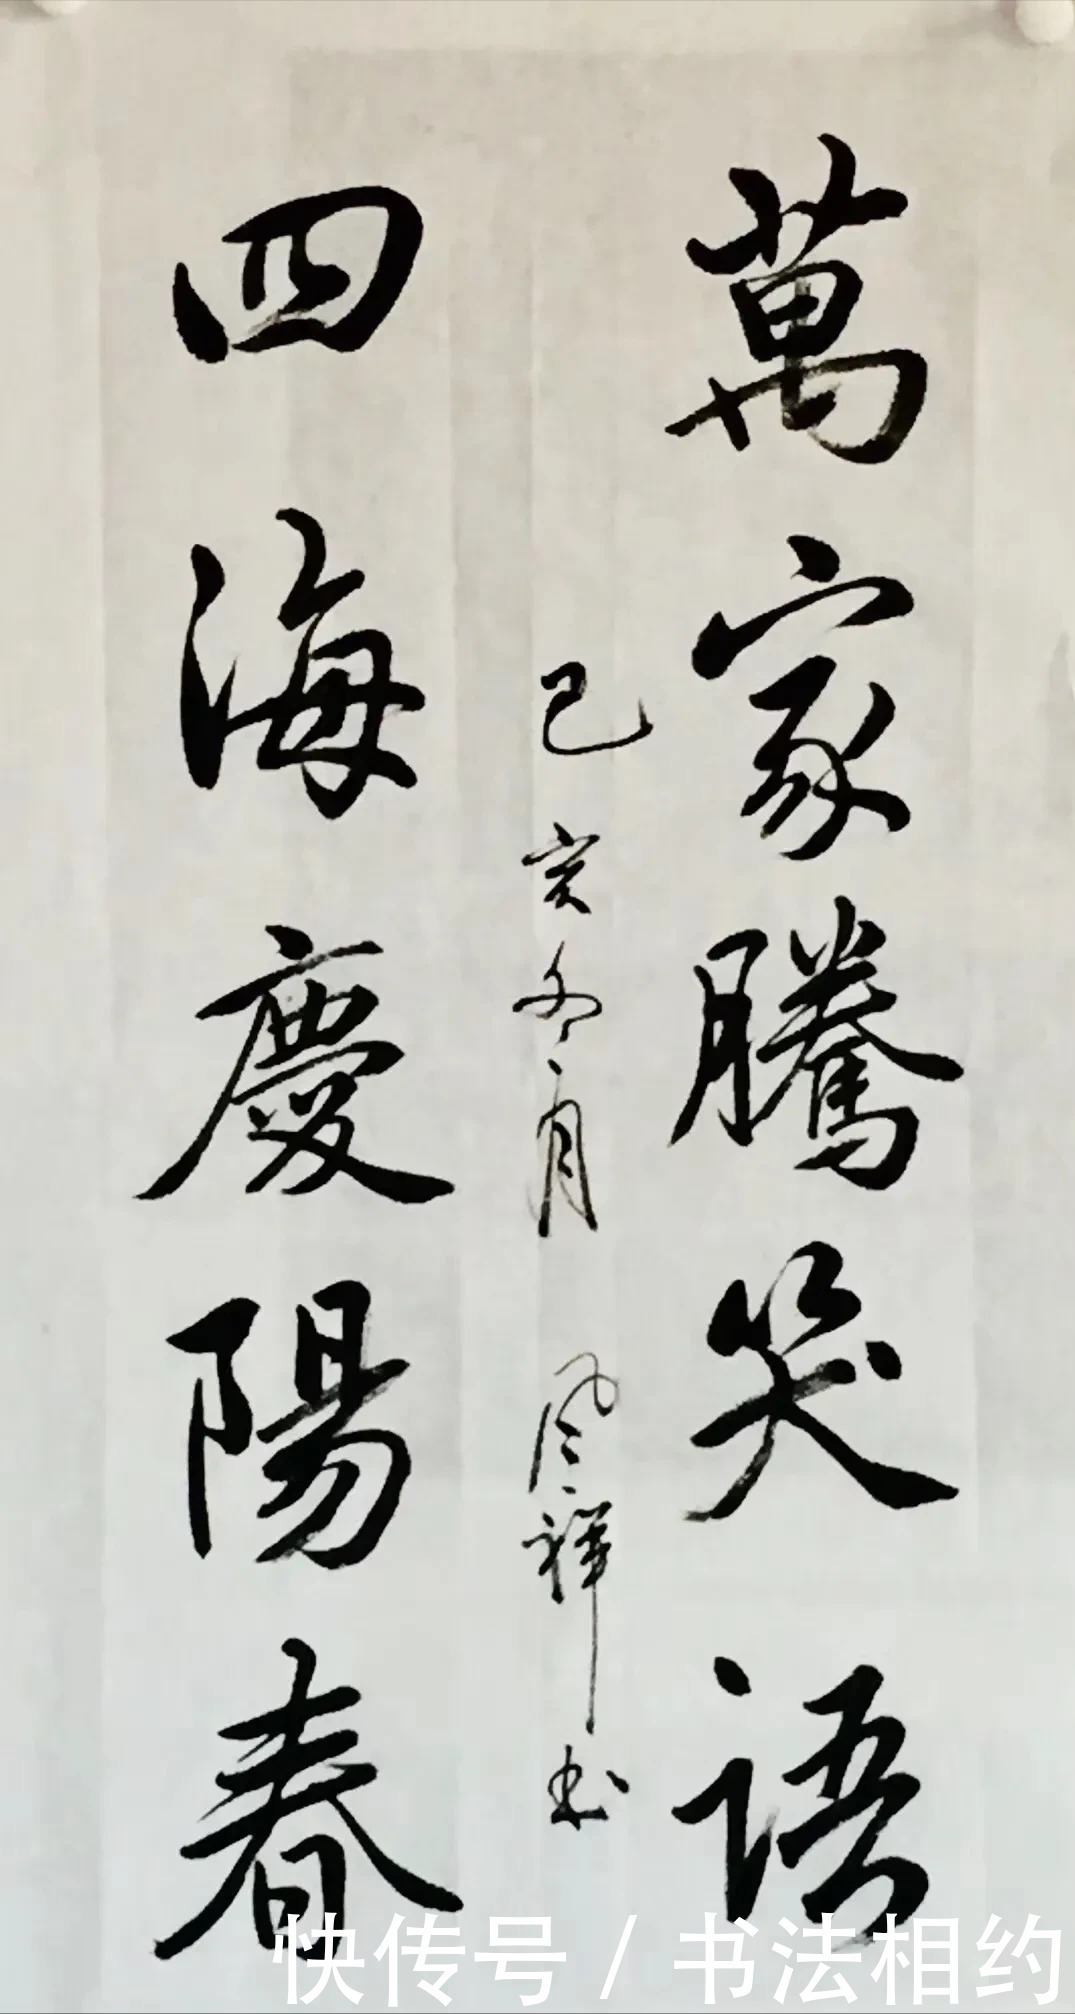 萬家騰笑語
四海慶陽春
己亥冬月 风祥书
快传号 / 书法相约